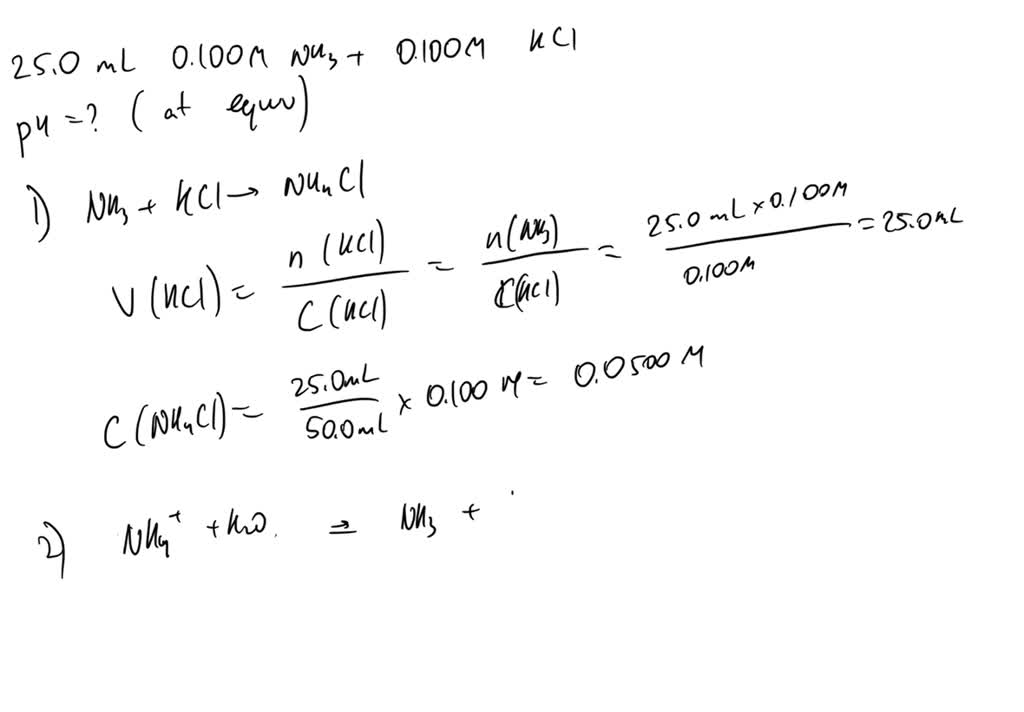 25.0 mL 0.100M NH3 + 0.100M HCl
pH = ? (at equiv)
1) NH3 + HCl → NH4Cl
V(HCl) = n(HCl) / C(HCl) = n(NH3) / C(HCl) = 25.0 mL × 0.100M / 0.100M = 25.0mL
C(NH4Cl) = 25.0mL / 50.0mL × 0.100 M = 0.0500 M
2) NH4+ + H2O ⇌ NH3 +